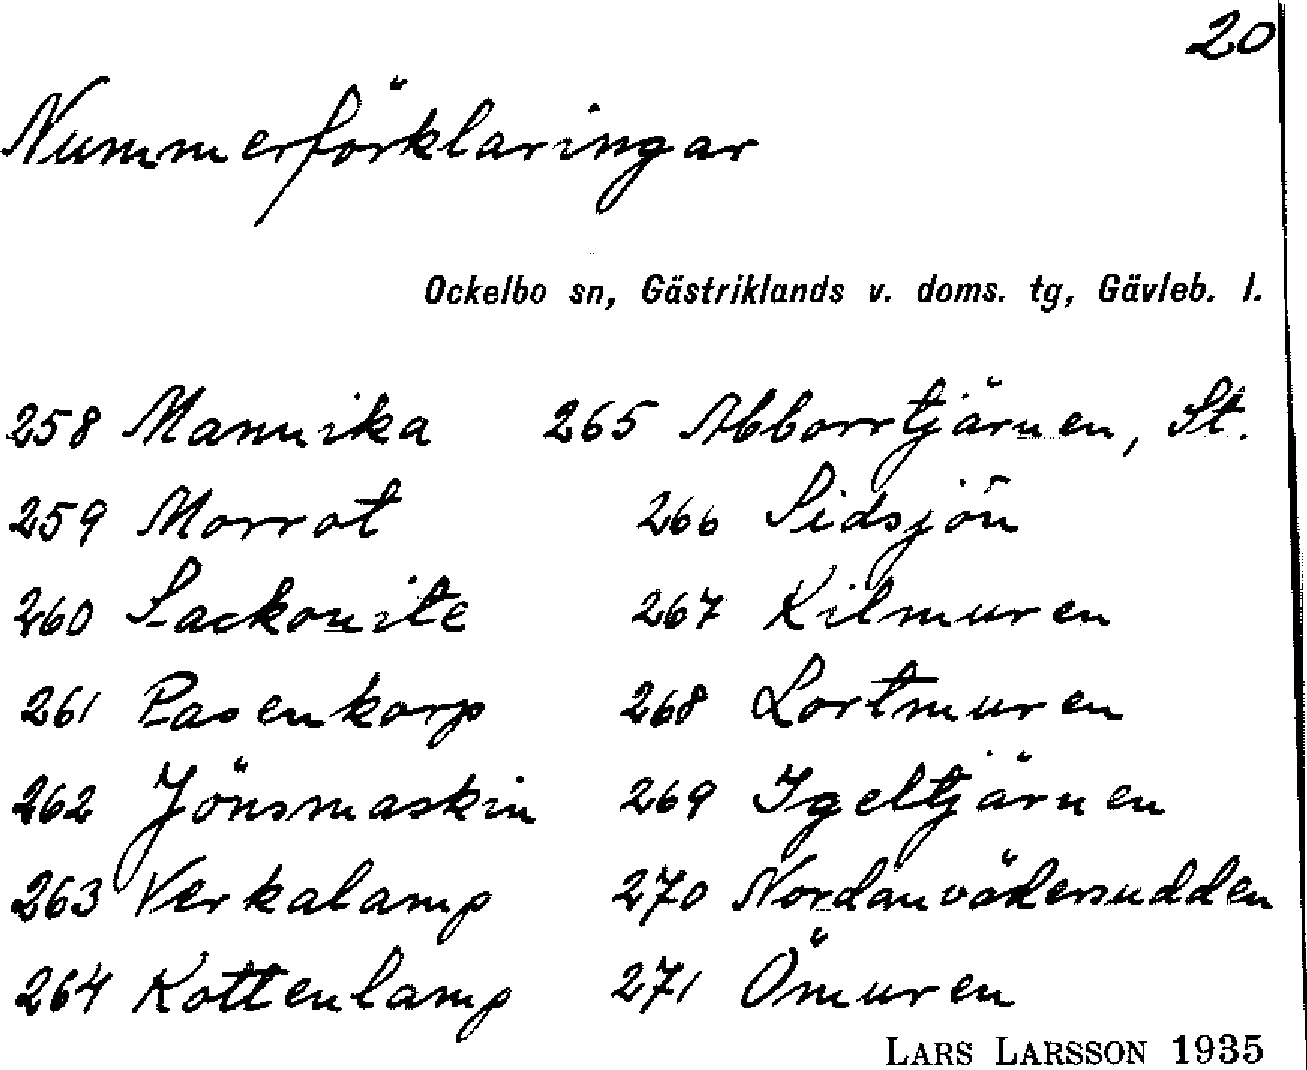 20
Nummerförklaringar
Ockelbo sn, Gästriklands v. doms. tg, Gävleb. l.
258 Mannika 265 Abborrtjärnen, St.
259 Morrot 266 Sidsjön
260 Sackonite 267 Kilmuren
261 Pasenkorp 268 Lortmuren
262 Jönsmaskin 269 Igeltjärnen
263 Verkalamp 270 Nordanvädersudden
264 Kottenlamp 271 Ömuren
LARS LARSSON 1935